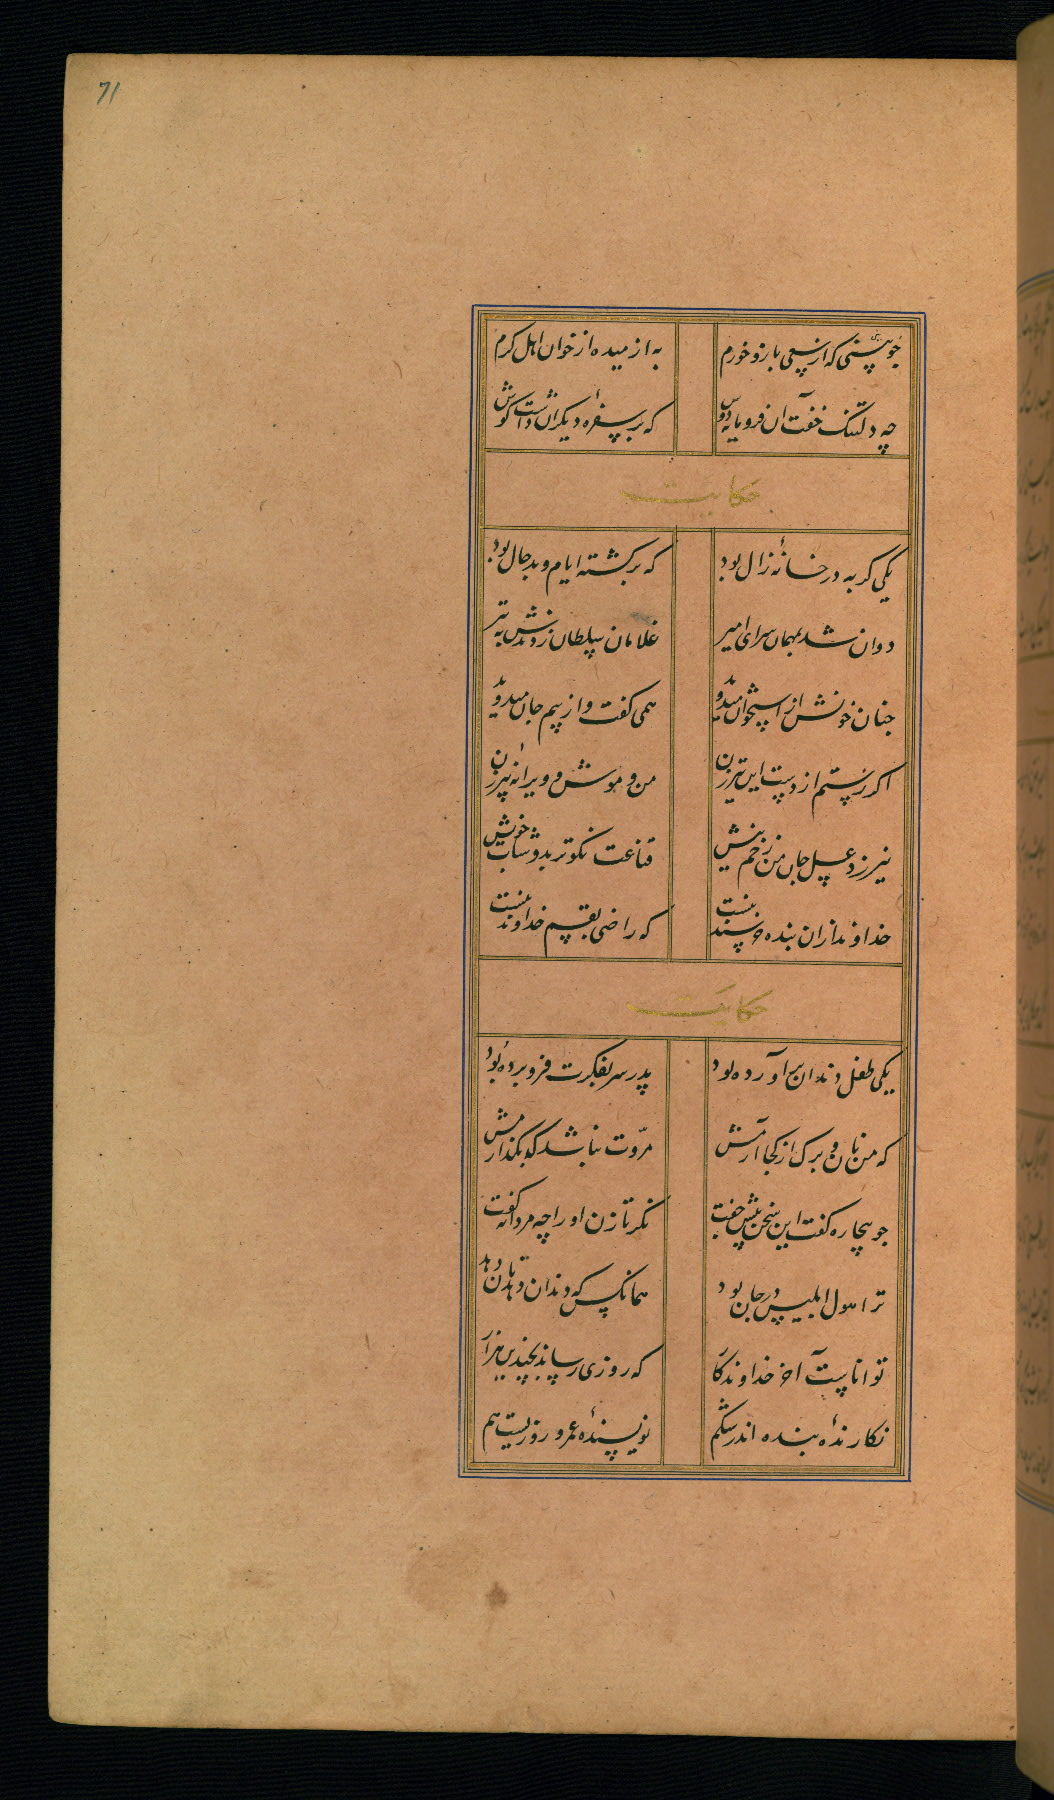 71
جوینی که از سعی بازو خورم به از میده از خوان اهل کرم
چه دلتنک خفت آن فرومایه دوش که بر سفرهٔ دیکران داشت کوش
حکایت
یکی کربه در خانهٔ زال بود که برکشته ایام و بدحال بود
دوان شد بمهمان سرای امیر غلامان سلطان زدندش به تیر
چنان خونش از استخوان میدوید همی کفت و از بیم جان میدوید
اکر رستم از دست این تیرزن من و موش و ویرانهٔ پیرزن
نیرزد عسل جان من زخم نیش قناعت نکوتر بدوشاب خویش
خداوند ازان بنده خرسند نیست که راضی بقسم خداوند نیست
حکایت
یکی طفل دندان برآورده بود پدر سر بفکرت فرو برده بود
که من نان و برک از کجا آرمش مروّت نباشد که بکذارمش
جو بیچاره کفت این سخن پیش جفت نکر تا زن او را چه مردانه کفت
ترا هول ابلیس در جان بود همانکس که دندان دهد نان دهد
تواناست آخر خداوندکار که روزی رساند بچندین هزار
نکارندهٔ بنده اندر شکم نویسندهٔ عمر و روزیست هم